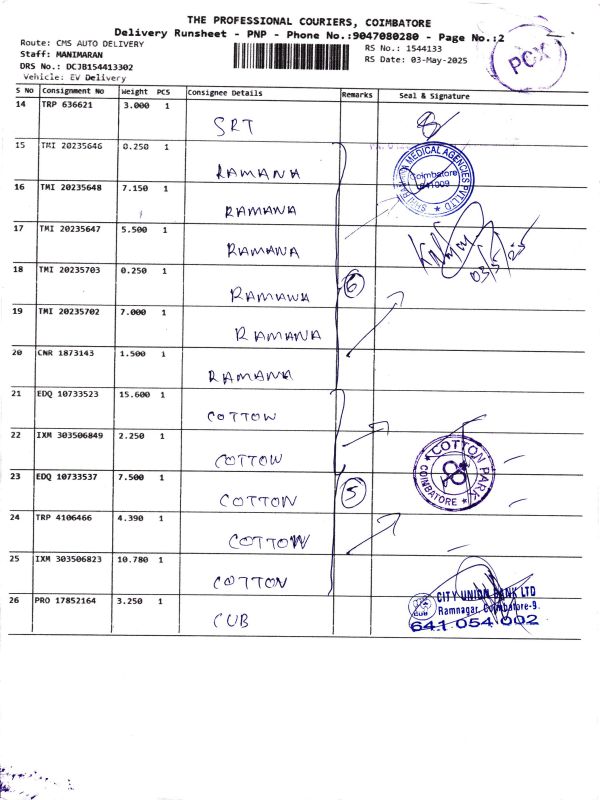 THE PROFESSIONAL COURIERS, COIMBATORE
Delivery Runsheet - PNP - Phone No.:9047080280 - Page No.:2
Route: CMS AUTO DELIVERY
RS No.: 1544133
Staff: MANIMARAN
RS Date: 03-May-2025
DRS No.: DCJB154413302
Vehicle: EV Delivery
POX
S No Consignment No Weight PCS Consignee Details Remarks Seal & Signature
14 TRP 636621 3.000 1 SRT
15 TMI 20235646 0.250 1 RAMANA
MEDICAL AGENCIES PVT LTD
Coimbatore
641009
16 TMI 20235648 7.150 1 RAMANA
17 TMI 20235647 5.500 1 RAMANA
03/5/25
18 TMI 20235703 0.250 1 RAMANA
6
19 TMI 20235702 7.000 1 RAMANA
20 CNR 1873143 1.500 1 RAMANA
21 EDQ 10733523 15.600 1 COTTON
22 IXM 303506849 2.250 1 COTTON
COTTON PARK
COIMBATORE
23 EDQ 10733537 7.500 1 COTTON
5
24 TRP 4106466 4.390 1 COTTON
25 IXM 303506823 10.780 1 COTTON
26 PRO 17852164 3.250 1 CUB
CUB
CITY UNION BANK LTD
Ramnagar, Coimbatore-9.
641 054 002